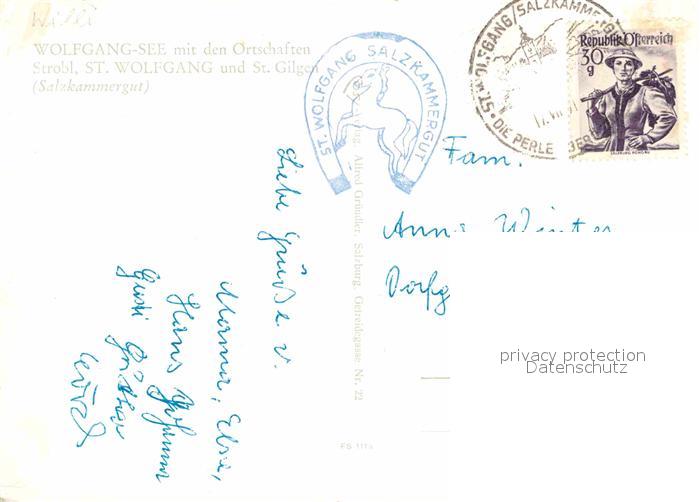 Willi
WOLFGANG-SEE mit den Ortschaften
Strobl, ST. WOLFGANG und St. Gilgen
(Salzkammergut)
ST. WOLFGANG SALZKAMMERGUT
ST. WOLFGANG/SALZKAMMERGUT
DIE PERLE
Republik Österreich
30
g
SALZBURG, PONGAU
Fam.
Anna Winter
privacy protection
Datenschutz
Verlag Alfred Gründler, Salzburg, Getreidegasse Nr. 22
FS 117a
Liebe Grüße v.
Mama, Else,
Hans Johanna
Gusti Günther